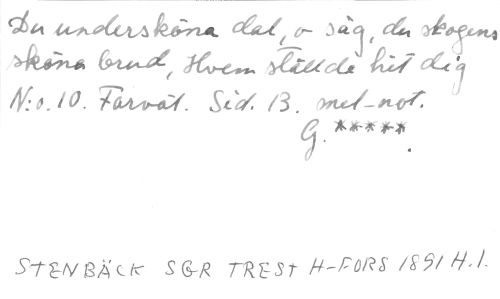 Du undersköna dal, o säg, du skogens
sköna brud, Hvem ställde hit dig
N:o. 10. Farväl. Sid. 13. mel-not.
G. *****.
STENBÄCK SGR TREST H-FORS 1891 H.1.